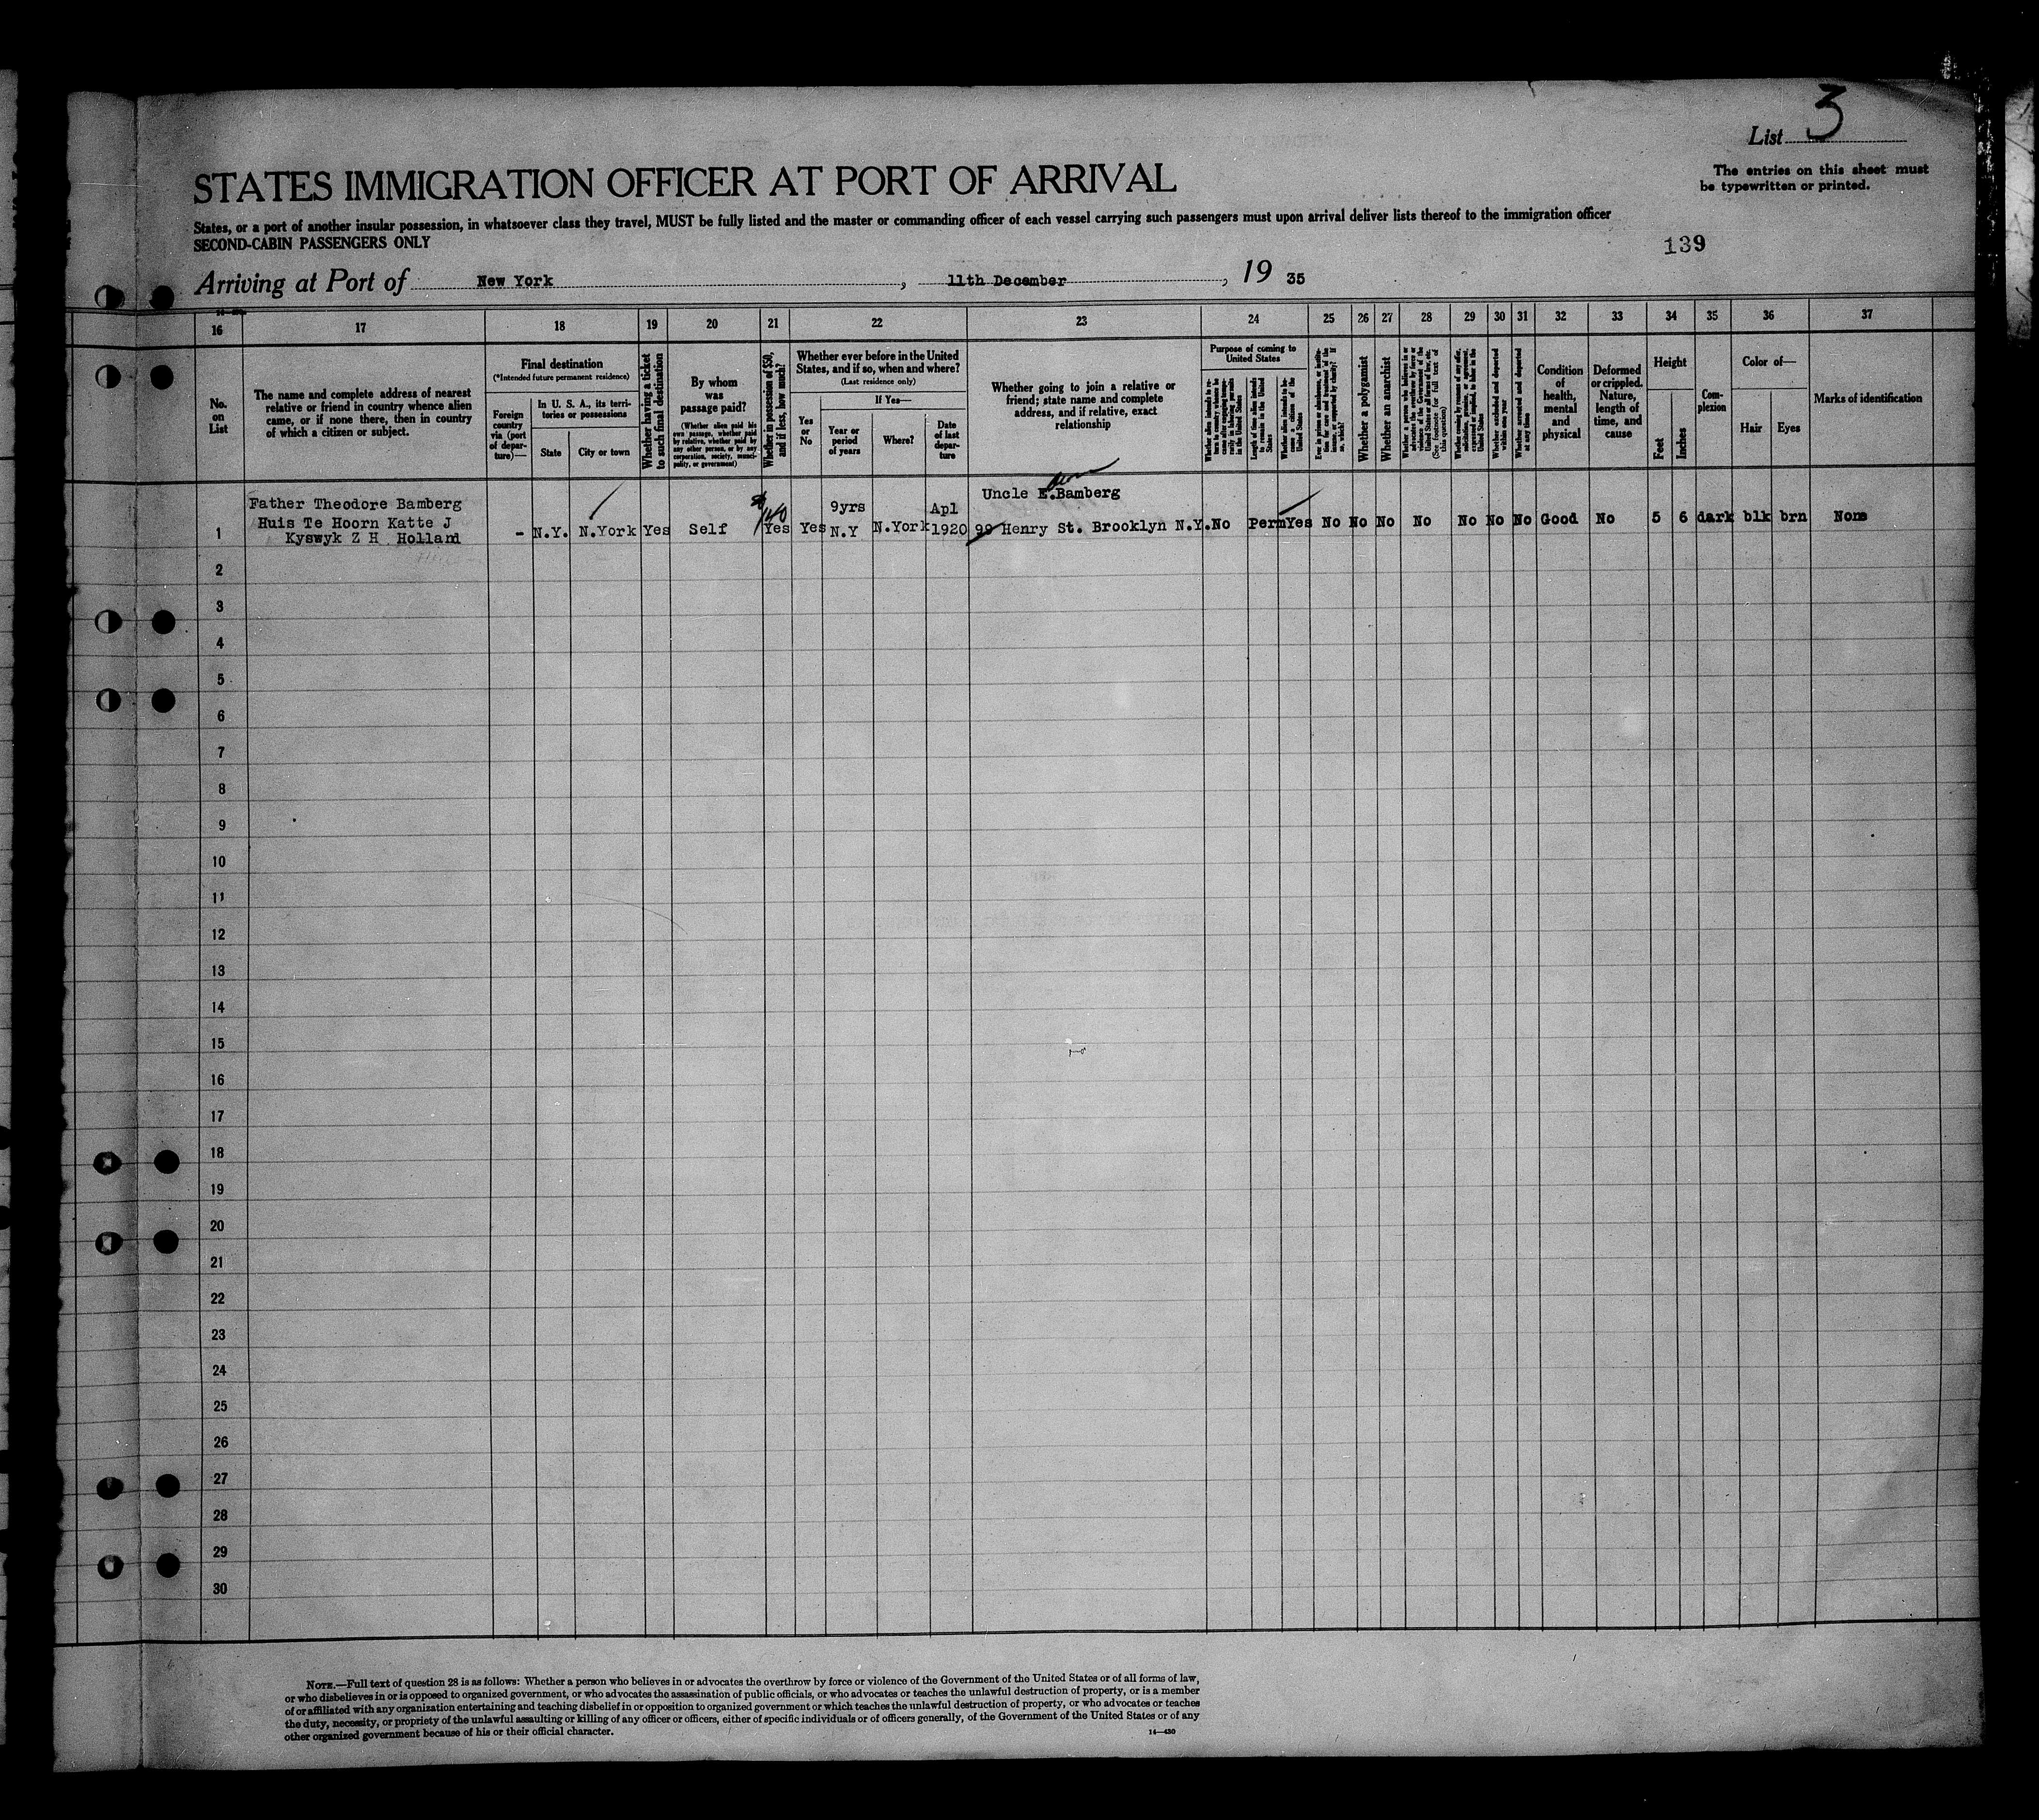 List 3
The entries on this sheet must
be typewritten or printed.
STATES IMMIGRATION OFFICER AT PORT OF ARRIVAL
States, or a port of another insular possession, in whatsoever class they travel, MUST be fully listed and the master or commanding officer of each vessel carrying such passengers must upon arrival deliver lists thereof to the immigration officer
SECOND-CABIN PASSENGERS ONLY
139
Arriving at Port of New York, 11th December, 19 35
16 17 18 19 20 21 22 23 24 25 26 27 28 29 30 31 32 33 34 35 36 37
No.
on
List
The name and complete address of nearest
relative or friend in country whence alien
came, or if none there, then in country
of which a citizen or subject.
Final destination
(*Intended future permanent residence)
Foreign
country
via (port
of depar-
ture)—
In U. S. A., its terri-
tories or possessions
State
City or town
Whether having a ticket
to such final destination
By whom
was
passage paid?
(Whether alien paid his
own passage, whether paid
by relative, whether paid by
any other person, or by any
corporation, society, munici-
pality, or government)
Whether in possession of $50,
and if less, how much?
Whether ever before in the United
States, and if so, when and where?
(Last residence only)
Yes
or
No
If Yes—
Year or
period
of years
Where?
Date
of last
depar-
ture
Whether going to join a relative or
friend; state name and complete
address, and if relative, exact
relationship
Purpose of coming to
United States
Length of time alien intends
to remain in the United
States
Whether alien intends to be-
come a citizen of the
United States
Whether a polygamist
Whether an anarchist
Whether arrested and deported
at any time
Condition
of
health,
mental
and
physical
Deformed
or crippled.
Nature,
length of
time, and
cause
Height
Feet
Inches
Com-
plexion
Color of—
Hair
Eyes
Marks of identification
Father Theodore Bamberg
Huis Te Hoorn Katte J
Kyswyk Z H Holland
1 - N.Y. N.York Yes Self Yes Yes 9yrs
N.Y N.York Apl
1920
Uncle E.Bamberg
99 Henry St. Brooklyn N.Y. No Perm Yes No No No No No No No Good No 5 6 dark blk brn None
2
3
4
5
6
7
8
9
10
11
12
13
14
15
16
17
18
19
20
21
22
23
24
25
26
27
28
29
30
NOTE.—Full text of question 28 is as follows: Whether a person who believes in or advocates the overthrow by force or violence of the Government of the United States or of all forms of law,
or who disbelieves in or is opposed to organized government, or who advocates the assassination of public officials, or who advocates or teaches the unlawful destruction of property, or is a member
of or affiliated with any organization entertaining and teaching disbelief in or opposition to organized government or which teaches the unlawful destruction of property, or who advocates or teaches
the duty, necessity, or propriety of the unlawful assaulting or killing of any officer or officers, either of specific individuals or of officers generally, of the Government of the United States or of any
other organized government because of his or their official character.
14—430